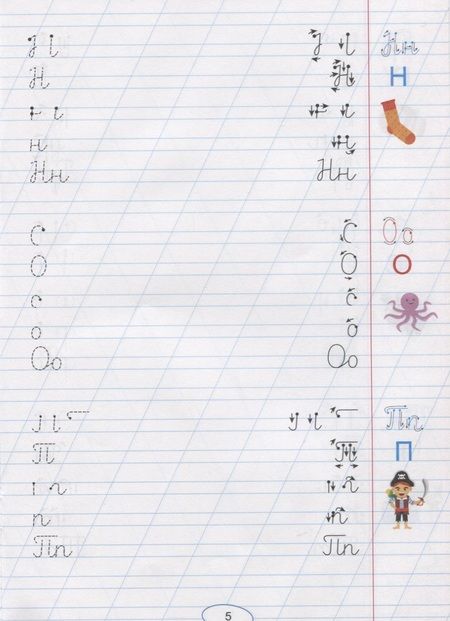 Н н
Н Н Н
н н
Нн Нн
С С Оо
О О О
с с
о о
Оо Оо
Пп
П П П
п п
Пп Пп
5